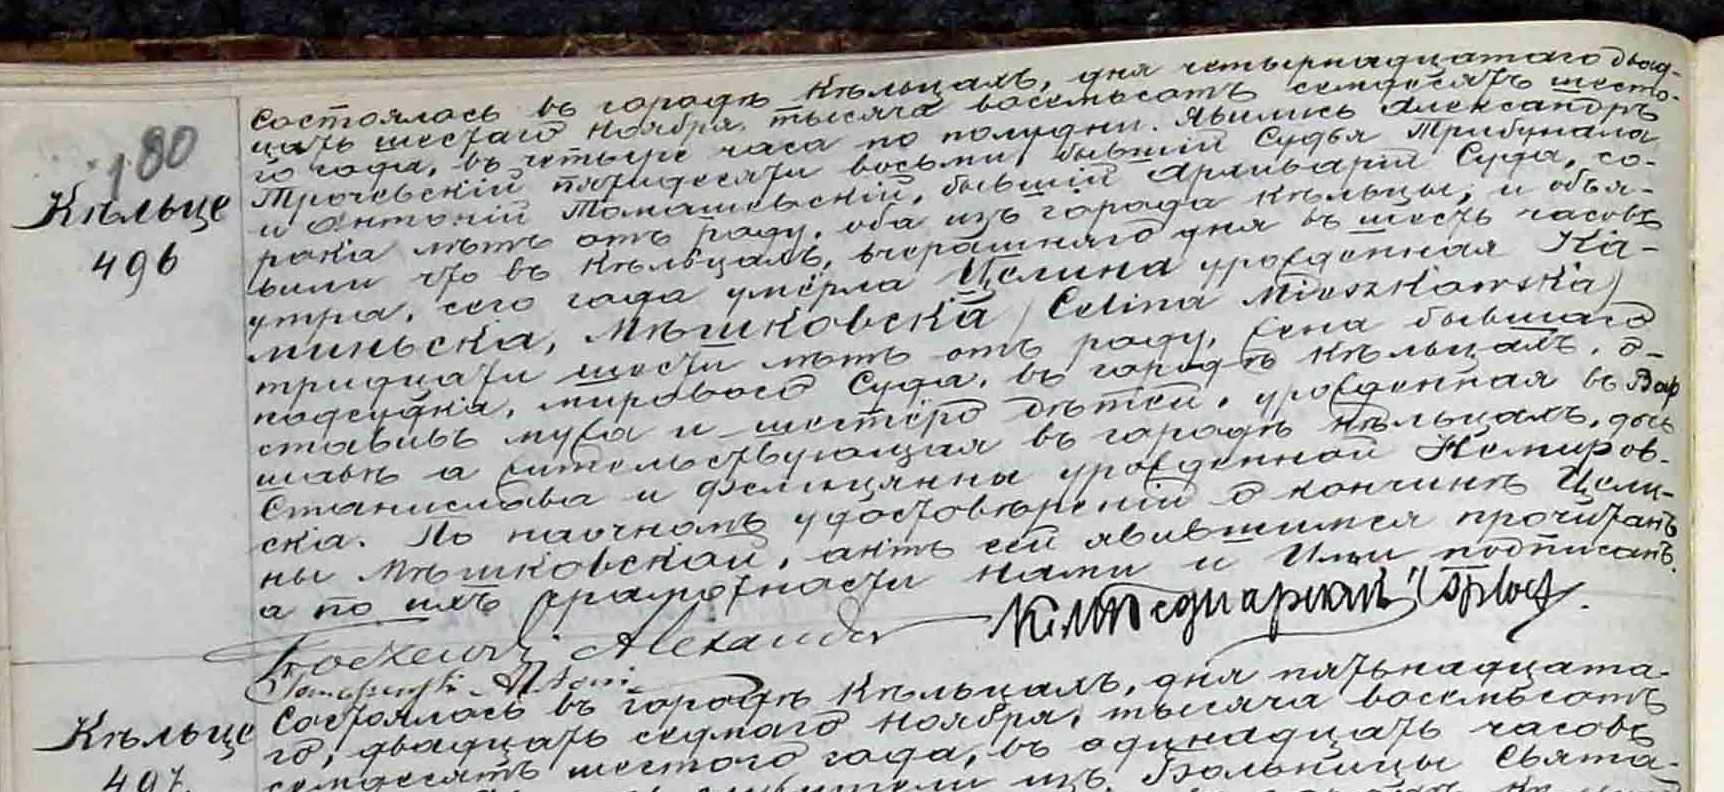 180
Кѣльце
496
Состоялось въ городѣ Кѣльцахъ, дня четырнадцатаго двад-
цать шестаго Ноября, тысяча восемьсотъ семдесятъ шесто-
го года, въ четыре часа по полудни. Явились Александръ
Трочевскій пятидесяти восьми, бывшій Судья Трибунала
и Антоній Томашевскій, бывшій Архиварій Суда, со-
рока лѣтъ отъ роду, оба изъ города Кѣльцы, и объя-
вили что въ Кѣльцахъ, вчерашняго дня въ шесть часовъ
утра, сего года умёрла Целина урожденная Ка-
миньска, Мѣшковска (Celina Mieszkowska)
тридцати шести лѣтъ отъ роду, жена бывшаго
подсудка, мироваго Суда, въ городѣ Кѣльцахъ, о-
ставивъ мужа и шестеро дѣтей, урожденная въ Вар
шавѣ а жительствующая въ городѣ Кѣльцахъ, дочь
Станислава и Фелицянны урожденной Немиров-
ска. По наочномъ удостовѣреній о кончинѣ Цели-
ны Мѣшковской, актъ сей явившимся прочитанъ
а по ихъ грамотности нами и Ими подписанъ.
Troczewski Alexander
Tomaszewski Antoni
Кѣльце
497.
Состоялось въ городѣ Кѣльцахъ, дня пятьнадцата-
го, двадцать седмаго Ноября, тысяча восемьсотъ
семдесятъ шестого года, въ одинадцать часовъ
изъ Больницы Свята-